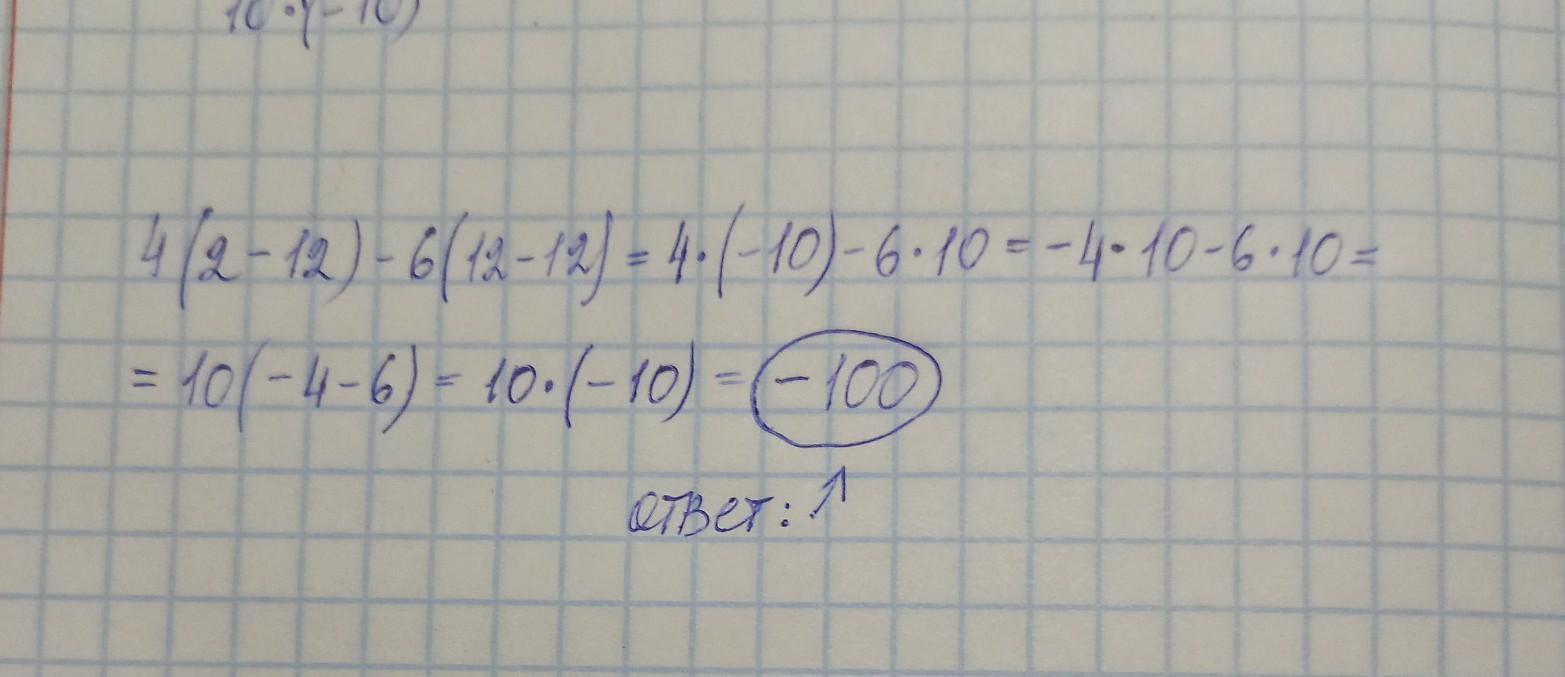 10·(-10)
4(2-12)-6(12-12)=4·(-10)-6·10=-4·10-6·10=
=10(-4-6)=10·(-10)=-100
ответ:↑